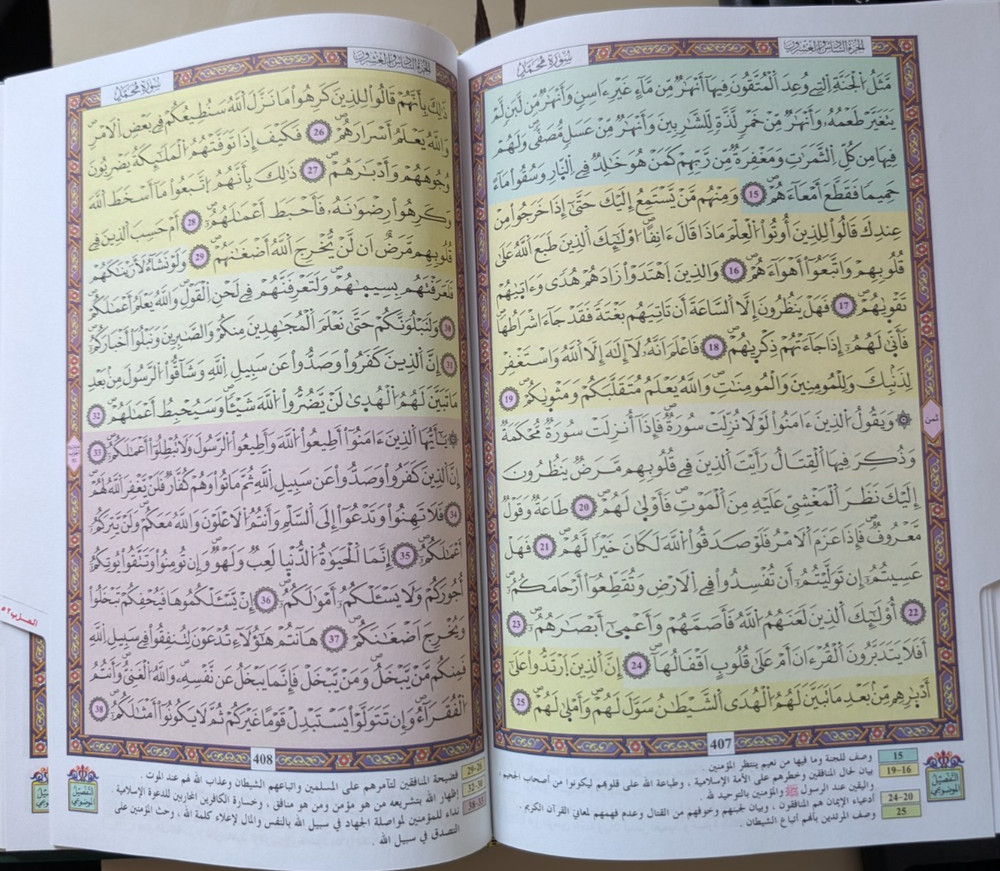 الجزء السادس والعشرون
سورة محمد
مَّثَلُ الْجَنَّةِ الَّتِے وُعِدَ الْمُتَّقُونَ فِيهَا أَنْهَٰرٌ مِّن مَّآءٍ غَيْرِ ءَاسِنٍ وَأَنْهَٰرٌ مِّن لَّبَنٍ لَّمْ
يَتَغَيَّرْ طَعْمُهُۥ وَأَنْهَٰرٌ مِّنْ خَمْرٍ لَّذَّةٍ لِّلشَّٰرِبِينَ وَأَنْهَٰرٌ مِّنْ عَسَلٍ مُّصَفًّى وَلَهُمْ
فِيهَا مِن كُلِّ الثَّمَرَٰتِ وَمَغْفِرَةٌ مِّن رَّبِّهِمْ كَمَنْ هُوَ خَٰلِدٌ فِے النّارِ وَسُقُوا۟ مَآءً
حَمِيماً فَقَطَّعَ أَمْعَآءَهُمْ 15 وَمِنْهُم مَّنْ يَّسْتَمِعُ إِلَيْكَ حَتَّىٰٓ إِذَا خَرَجُوا۟ مِنْ
عِندِكَ قَالُوا۟ لِلَّذِينَ أُوتُوا۟ الْعِلْمَ مَاذَا قَالَ ءَانِفاً اوْلَٰٓئِكَ الَّذِينَ طَبَعَ اللَّهُ عَلَىٰ
قُلُوبِهِمْ وَاتَّبَعُوٓا۟ أَهْوَآءَهُمْ 16 وَالَّذِينَ اَهْتَدَوْا۟ زَادَهُمْ هُدًى وَءَاتَىٰهُمْ
تَقْوَىٰهُمْ 17 فَهَلْ يَنظُرُونَ إِلَّا اَلسَّاعَةَ أَن تَاتِيَهُم بَغْتَةً فَقَدْ جَآءَ اشْرَاطُهَا
فَأَنَّىٰ لَهُمُۥٓ إِذَا جَآءَتْهُمْ ذِكْرَىٰهُمْ 18 فَاعْلَمَ اَنَّهُۥ لَآ إِلَٰهَ إِلَّا اَللَّهُ وَاسْتَغْفِرْ
لِذَنۢبِكَ وَلِلْمُومِنِينَ وَالْمُومِنَٰتِ وَاللَّهُ يَعْلَمُ مُتَقَلَّبَكُمْ وَمَثْوَىٰكُمْ 19
۞ وَيَقُولُ الَّذِينَ ءَامَنُوا۟ لَوْلَا نُزِّلَتْ سُورَةٌ فَإِذَآ أُنزِلَتْ سُورَةٌ مُّحْكَمَةٌ
وَذُكِرَ فِيهَا الْقِتَالُ رَأَيْتَ الَّذِينَ فِے قُلُوبِهِم مَّرَضٌ يَنظُرُونَ
إِلَيْكَ نَظَرَ الْمَغْشِيِّ عَلَيْهِ مِنَ الْمَوْتِ فَأَوْلَىٰ لَهُمْ 20 طَاعَةٌ وَقَوْلٌ
مَّعْرُوفٌ فَإِذَا عَزَمَ الَامْرُ فَلَوْ صَدَقُوا۟ اللَّهَ لَكَانَ خَيْراً لَّهُمْ 21 فَهَلْ
عَسِيتُمُۥٓ إِن تَوَلَّيْتُمُۥٓ أَن تُفْسِدُوا۟ فِے الَارْضِ وَتُقَطِّعُوٓا۟ أَرْحَامَكُمُۥٓ
22 أُوْلَٰٓئِكَ الَّذِينَ لَعَنَهُمُ اللَّهُ فَأَصَمَّهُمْ وَأَعْمَىٰٓ أَبْصَٰرَهُمُۥٓ 23
أَفَلَا يَتَدَبَّرُونَ الْقُرْءَانَ أَمْ عَلَىٰ قُلُوبٍ اَقْفَالُهَآ 24 إِنَّ الَّذِينَ اَرْتَدُّوا۟ عَلَىٰٓ
أَدْبَٰرِهِم مِّنۢ بَعْدِ مَا تَبَيَّنَ لَهُمُ الْهُدَى الشَّيْطَٰنُ سَوَّلَ لَهُمْ وَأَمْلَىٰ لَهُمْ 25
ثمن
407
15 وصف للجنة وما فيها من نعيم ينتظر المؤمنين .
16-19 بيان لحال المنافقين وخطرهم على الأمة الإسلامية ، وطباعة الله على قلوبهم ليكونوا من أصحاب الجحيم ،
واليقين عند الرسول ﷺ والمؤمنين بالتوحيد لله .
20-24 أدعياء الإيمان هم المنافقون ، وبيان لجبنهم وخوفهم من القتال وعدم فهمهم لمعاني القرآن الكريم .
25 وصف المرتدين بأنهم أتباع الشيطان .
التفصيل الموضوعي
الجزء السادس والعشرون
سورة محمد
ذَٰلِكَ بِأَنَّهُمْ قَالُوا۟ لِلَّذِينَ كَرِهُوا۟ مَا نَزَّلَ اللَّهُ سَنُطِيعُكُمْ فِے بَعْضِ الَامْرِ
وَاللَّهُ يَعْلَمُ أَسْرَارَهُمْ 26 فَكَيْفَ إِذَا تَوَفَّتْهُمُ الْمَلَٰٓئِكَةُ يَضْرِبُونَ
وُجُوهَهُمْ وَأَدْبَٰرَهُمْ 27 ذَٰلِكَ بِأَنَّهُمُ اتَّبَعُوا۟ مَآ أَسْخَطَ اللَّهَ
وَكَرِهُوا۟ رِضْوَٰنَهُۥ فَأَحْبَطَ أَعْمَٰلَهُمُۥٓ 28 أَمْ حَسِبَ الَّذِينَ فِے
قُلُوبِهِم مَّرَضٌ اَن لَّنْ يُّخْرِجَ اللَّهُ أَضْغَٰنَهُمْ 29 وَلَوْ نَشَآءُ لَأَرَيْنَٰكَهُمْ
فَلَعَرَفْتَهُم بِسِيمَٰهُمْ وَلَتَعْرِفَنَّهُمْ فِے لَحْنِ الْقَوْلِ وَاللَّهُ يَعْلَمُ أَعْمَٰلَكُمْ
30 وَلَنَبْلُوَنَّكُمْ حَتَّىٰ نَعْلَمَ الْمُجَٰهِدِينَ مِنكُمْ وَالصَّٰبِرِينَ وَنَبْلُوَا۟ أَخْبَارَكُمُۥٓ
31 إِنَّ الَّذِينَ كَفَرُوا۟ وَصَدُّوا۟ عَن سَبِيلِ اللَّهِ وَشَآقُّوا۟ الرَّسُولَ مِنۢ بَعْدِ
مَا تَبَيَّنَ لَهُمُ الْهُدَىٰ لَنْ يَّضُرُّوا۟ اللَّهَ شَيْـٔاً وَسَيُحْبِطُ أَعْمَٰلَهُمْ 32
۞ يَٰٓأَيُّهَا الَّذِينَ ءَامَنُوٓا۟ أَطِيعُوا۟ اللَّهَ وَأَطِيعُوا۟ الرَّسُولَ وَلَا تُبْطِلُوٓا۟ أَعْمَٰلَكُمُۥٓ 33
إِنَّ الَّذِينَ كَفَرُوا۟ وَصَدُّوا۟ عَن سَبِيلِ اللَّهِ ثُمَّ مَاتُوا۟ وَهُمْ كُفَّارٌ فَلَنْ يَّغْفِرَ اللَّهُ لَهُمْ
34 فَلَا تَهِنُوا۟ وَتَدْعُوٓا۟ إِلَى السَّلْمِ وَأَنتُمُ الَاعْلَوْنَ وَاللَّهُ مَعَكُمْ وَلَنْ يَّتِرَكُمُۥٓ
أَعْمَٰلَكُمُۥٓ 35 إِنَّمَا الْحَيَوٰةُ الدُّنْيَا لَعِبٌ وَلَهْوٌ وَإِن تُومِنُوا۟ وَتَتَّقُوا۟ يُوتِكُمُۥٓ
أُجُورَكُمْ وَلَا يَسْـَٔلْكُمُۥٓ أَمْوَٰلَكُمُۥٓ 36 إِنْ يَّسْـَٔلْكُمُوهَا فَيُحْفِكُمْ تَبْخَلُوا۟
وَيُخْرِجَ اَضْغَٰنَكُمْ 37 هَٰٓأَنتُمْ هَٰٓؤُلَآءِ تُدْعَوْنَ لِتُنفِقُوا۟ فِے سَبِيلِ اللَّهِ
فَمِنكُم مَّنْ يَّبْخَلُ وَمَنْ يَّبْخَلْ فَإِنَّمَا يَبْخَلُ عَن نَّفْسِهِۦ وَاللَّهُ الْغَنِيُّ وَأَنتُمُ
الْفُقَرَآءُ وَإِن تَتَوَلَّوْا۟ يَسْتَبْدِلْ قَوْماً غَيْرَكُمْ ثُمَّ لَا يَكُونُوٓا۟ أَمْثَٰلَكُمُۥٓ 38
408
26-29 فضيحة المنافقين لتآمرهم على المسلمين واتباعهم الشيطان وعذاب الله لهم عند الموت .
30-32 إظهار الله بتشريعه من هو مؤمن ومن هو منافق ، وخسارة الكافرين المحاربين للدعوة الإسلامية .
33-38 نداء للمؤمنين لمواصلة الجهاد في سبيل الله بالنفس والمال لإعلاء كلمة الله ، وحث المؤمنين على
التصدق في سبيل الله .
التفصيل الموضوعي